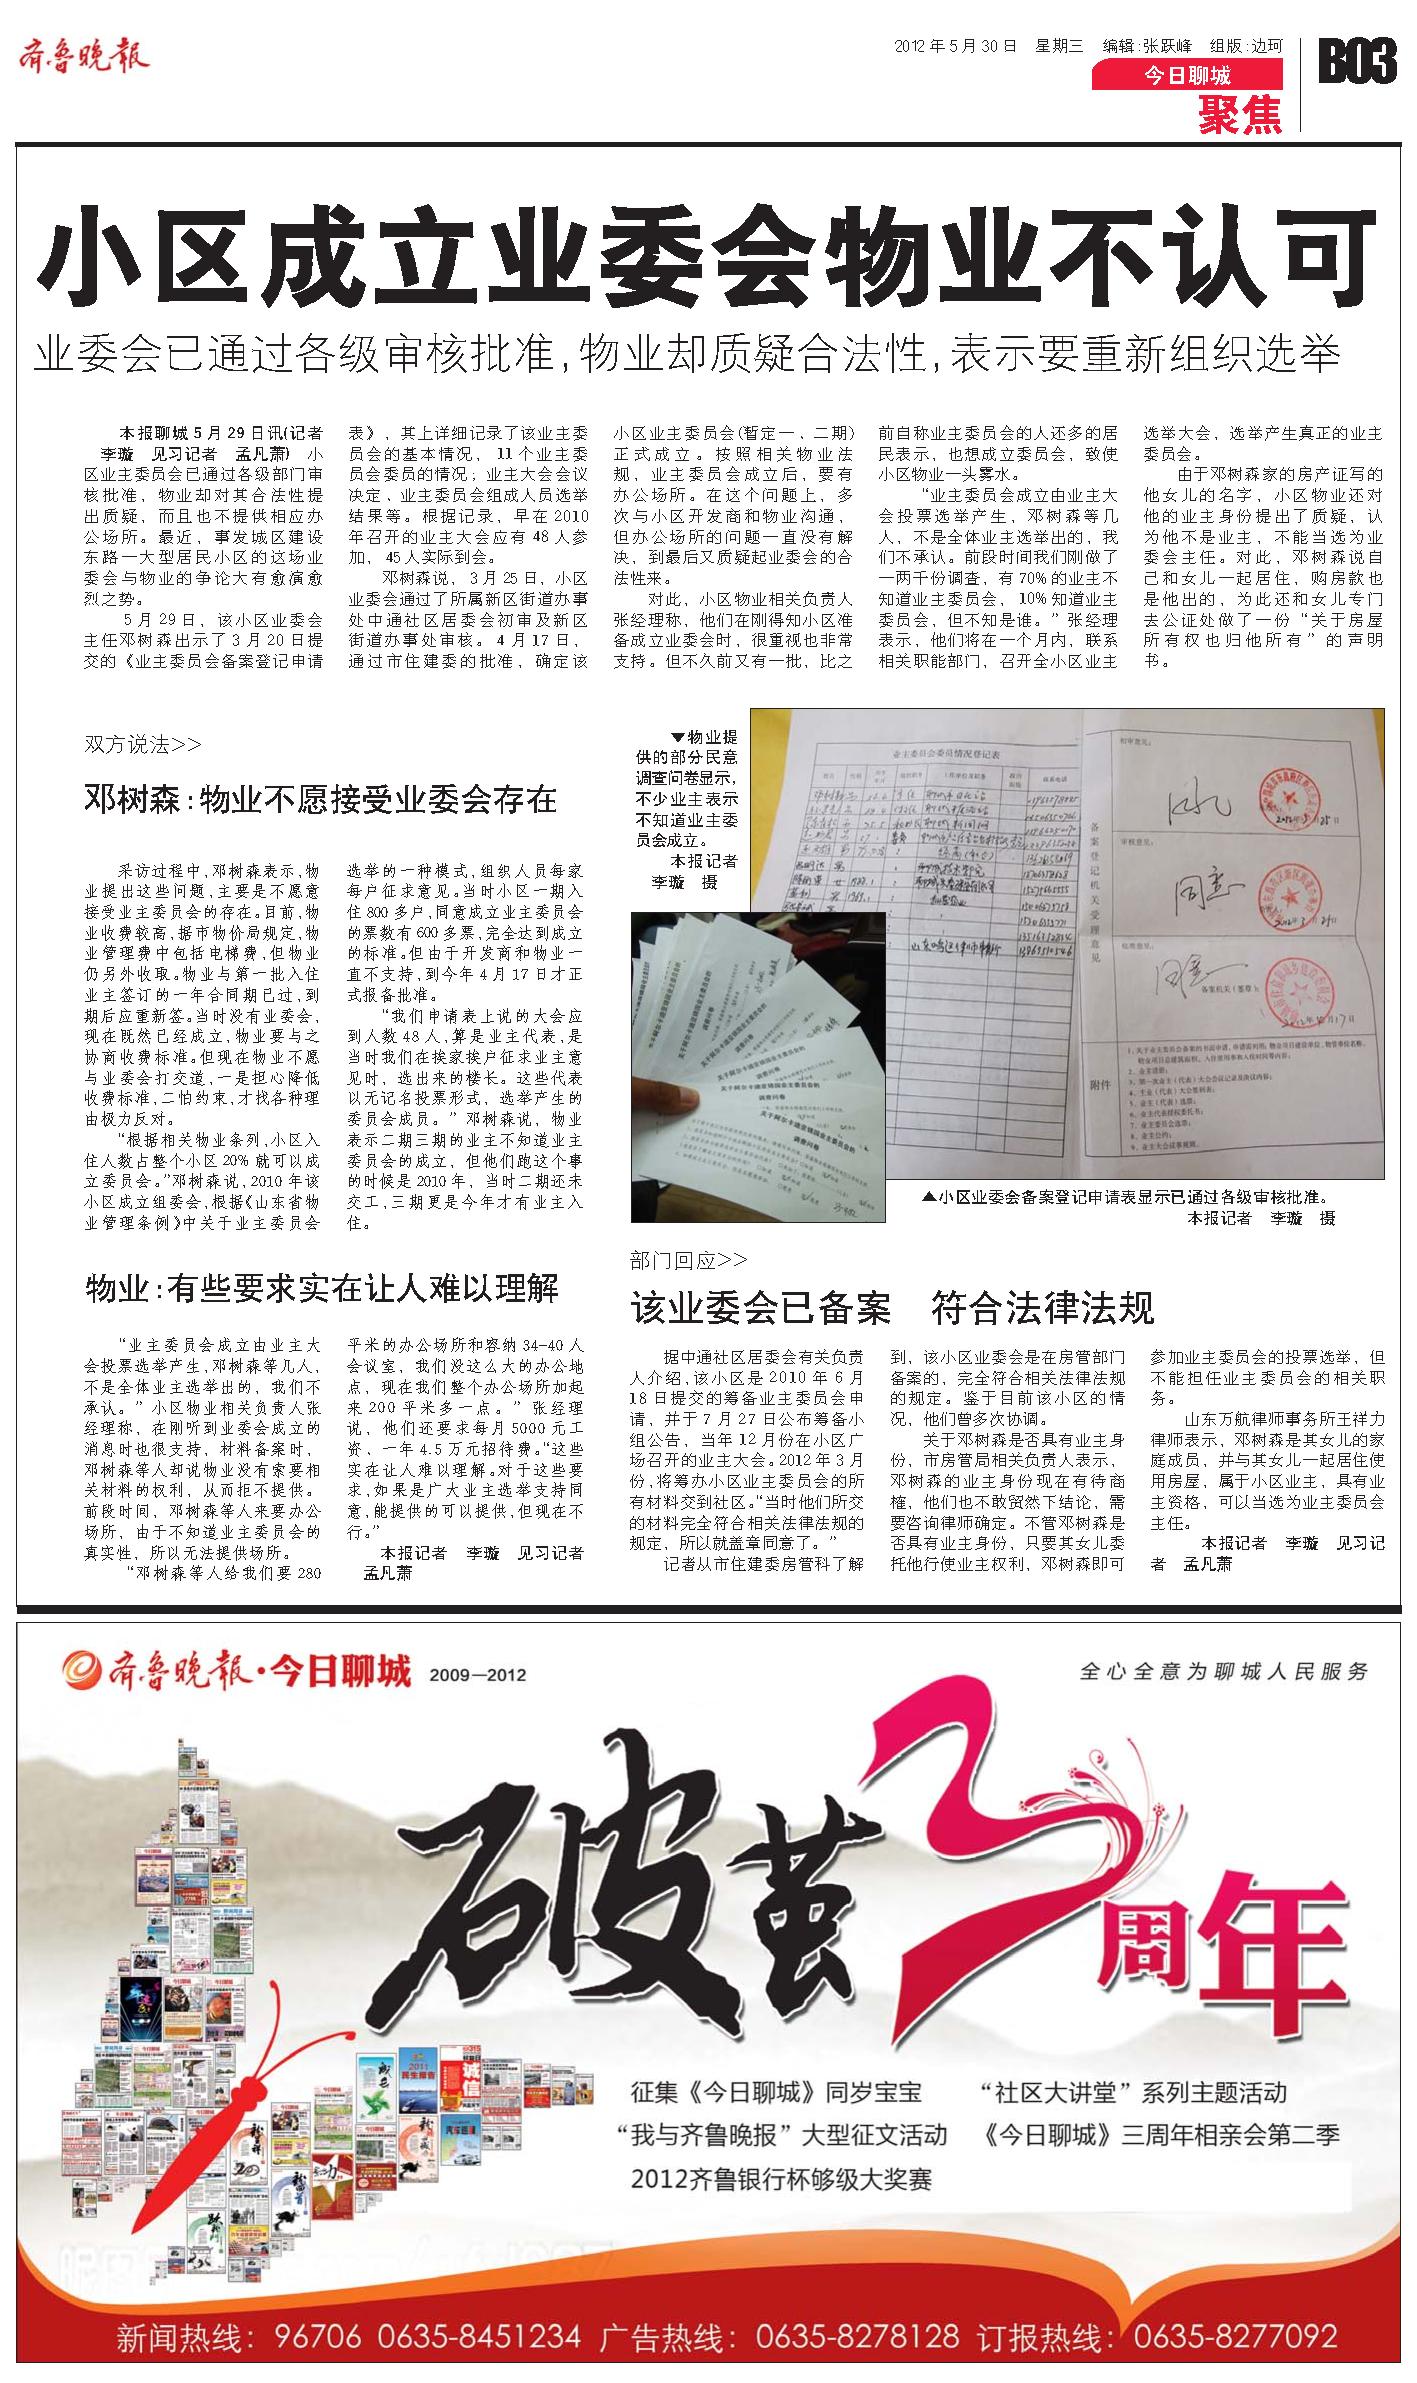 齐鲁晚报
2012年5月30日 星期三 编辑:张跃峰 组版:边珂
今日聊城
聚焦
B03
小区成立业委会物业不认可
业委会已通过各级审核批准,物业却质疑合法性,表示要重新组织选举
本报聊城5月29日讯(记者
李璇 见习记者 孟凡萧) 小
区业主委员会已通过各级部门审
核批准，物业却对其合法性提
出质疑，而且也不提供相应办
公场所。最近，事发城区建设
东路一大型居民小区的这场业
委会与物业的争论大有愈演愈
烈之势。
5月29日，该小区业委会
主任邓树森出示了3月20日提
交的《业主委员会备案登记申请
表》，其上详细记录了该业主委
员会的基本情况，11个业主委
员会委员的情况；业主大会会议
决定，业主委员会组成人员选举
结果等。根据记录，早在2010
年召开的业主大会应有48人参
加，45人实际到会。
邓树森说，3月25日，小区
业委会通过了所属新区街道办事
处中通社区居委会初审及新区
街道办事处审核。4月17日，
通过市住建委的批准，确定该
小区业主委员会(暂定一、二期)
正式成立。按照相关物业法
规，业主委员会成立后，要有
办公场所。在这个问题上，多
次与小区开发商和物业沟通，
但办公场所的问题一直没有解
决，到最后又质疑起业委会的合
法性来。
对此，小区物业相关负责人
张经理称，他们在刚得知小区准
备成立业委会时，很重视也非常
支持。但不久前又有一批，比之
前自称业主委员会的人还多的居
民表示，也想成立委员会，致使
小区物业一头雾水。
“业主委员会成立由业主大
会投票选举产生，邓树森等几
人，不是全体业主选举出的，我
们不承认。前段时间我们刚做了
一两千份调查，有70%的业主不
知道业主委员会，10%知道业主
委员会，但不知是谁。”张经理
表示，他们将在一个月内，联系
相关职能部门，召开全小区业主
选举大会，选举产生真正的业主
委员会。
由于邓树森家的房产证写的
他女儿的名字，小区物业还对
他的业主身份提出了质疑，认
为他不是业主，不能当选为业
委会主任。对此，邓树森说自
己和女儿一起居住，购房款也
是他出的，为此还和女儿专门
去公证处做了一份“关于房屋
所有权也归他所有”的声明
书。
双方说法>>
邓树森:物业不愿接受业委会存在
采访过程中,邓树森表示,物
业提出这些问题,主要是不愿意
接受业主委员会的存在。目前,物
业收费较高,据市物价局规定,物
业管理费中包括电梯费,但物业
仍另外收取。物业与第一批入住
业主签订的一年合同期已过,到
期后应重新签。当时没有业委会,
现在既然已经成立,物业要与之
协商收费标准。但现在物业不愿
与业委会打交道,一是担心降低
收费标准,二怕约束,才找各种理
由极力反对。
“根据相关物业条列,小区入
住人数占整个小区20%就可以成
立委员会。”邓树森说,2010年该
小区成立组委会,根据《山东省物
业管理条例》中关于业主委员会
选举的一种模式,组织人员每家
每户征求意见。当时小区一期入
住800多户,同意成立业主委员会
的票数有600多票,完全达到成立
的标准。但由于开发商和物业一
直不支持,到今年4月17日才正
式报备批准。
“我们申请表上说的大会应
到人数48人,算是业主代表,是
当时我们在挨家挨户征求业主意
见时，选出来的楼长。这些代表
以无记名投票形式，选举产生的
委员会成员。”邓树森说，物业
表示二期三期的业主不知道业主
委员会的成立，但他们跑这个事
的时候是2010年，当时二期还未
交工,三期更是今年才有业主入
住。
▼物业提
供的部分民意
调查问卷显示,
不少业主表示
不知道业主委
员会成立。
本报记者
李璇 摄
业主委员会委员情况登记表
初审意见:
审核意见:
同意
批准意见:
同意
备案机关(签章)
备案登记机关受理意见
附件
关于阿尔卡迪亚锦园业主委员会的
调查问卷
▲小区业委会备案登记申请表显示已通过各级审核批准。
本报记者 李璇 摄
物业:有些要求实在让人难以理解
“业主委员会成立由业主大
会投票选举产生,邓树森等几人,
不是全体业主选举出的，我们不
承认。”小区物业相关负责人张
经理称，在刚听到业委会成立的
消息时也很支持，材料备案时，
邓树森等人却说物业没有索要相
关材料的权利，从而拒不提供。
前段时间，邓树森等人来要办公
场所，由于不知道业主委员会的
真实性，所以无法提供场所。
“邓树森等人给我们要280
平米的办公场所和容纳34-40人
会议室，我们没这么大的办公地
点，现在我们整个办公场所加起
来200平米多一点。”张经理
说，他们还要求每月5000元工
资，一年4.5万元招待费。“这些
实在让人难以理解。对于这些要
求,如果是广大业主选举支持同
意,能提供的可以提供,但现在不
行。”
本报记者 李璇 见习记者
孟凡萧
部门回应>>
该业委会已备案 符合法律法规
据中通社区居委会有关负责
人介绍,该小区是2010年6月
18日提交的筹备业主委员会申
请，并于7月27日公布筹备小
组公告，当年12月份在小区广
场召开的业主大会。2012年3月
份,将筹办小区业主委员会的所
有材料交到社区。“当时他们所交
的材料完全符合相关法律法规的
规定，所以就盖章同意了。”
记者从市住建委房管科了解
到，该小区业委会是在房管部门
备案的，完全符合相关法律法规
的规定。鉴于目前该小区的情
况，他们曾多次协调。
关于邓树森是否具有业主身
份，市房管局相关负责人表示，
邓树森的业主身份现在有待商
榷，他们也不敢贸然下结论，需
要咨询律师确定。不管邓树森是
否具有业主身份，只要其女儿委
托他行使业主权利，邓树森即可
参加业主委员会的投票选举，但
不能担任业主委员会的相关职
务。
山东万航律师事务所王祥力
律师表示，邓树森是其女儿的家
庭成员，并与其女儿一起居住使
用房屋，属于小区业主，具有业
主资格，可以当选为业主委员会
主任。
本报记者 李璇 见习记
者 孟凡萧
齐鲁晚报·今日聊城 2009—2012
全心全意为聊城人民服务
破茧3周年
征集《今日聊城》同岁宝宝 “社区大讲堂”系列主题活动
“我与齐鲁晚报”大型征文活动 《今日聊城》三周年相亲会第二季
2012齐鲁银行杯够级大奖赛
新闻热线：96706 0635-8451234 广告热线：0635-8278128 订报热线：0635-8277092